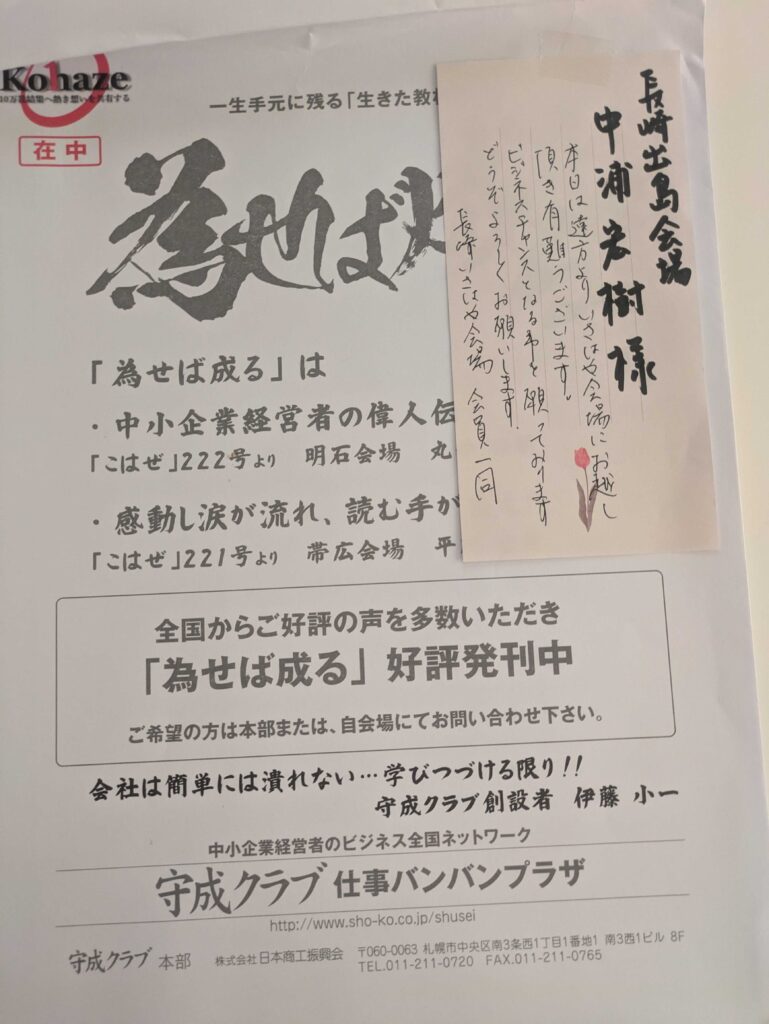 Kohaze
在中
一生手元に残る「生きた教
為せば
「為せば成る」は
・中小企業経営者の偉人伝
「こはぜ」222号より 明石会場 丸
・感動し涙が流れ、読む手が
「こはぜ」221号より 帯広会場 平
長崎出島会場
中浦宏樹様
本日は遠方よりいさはや会場にお越し
頂き有難うございます。
ビジネスチャンスとなる事を願っております
どうぞよろしくお願いします。
長崎いさはや会場 会員一同
全国からご好評の声を多数いただき
「為せば成る」好評発刊中
ご希望の方は本部または、自会場にてお問い合わせ下さい。
会社は簡単には潰れない…学びつづける限り!!
守成クラブ創設者 伊藤 小一
中小企業経営者のビジネス全国ネットワーク
守成クラブ 仕事バンバンプラザ
http://www.sho-ko.co.jp/shusei
守成クラブ 本部 株式会社 日本商工振興会 〒060-0063 札幌市中央区南3条西1丁目1番地1 南3西1ビル 8F
TEL.011-211-0720 FAX.011-211-0765